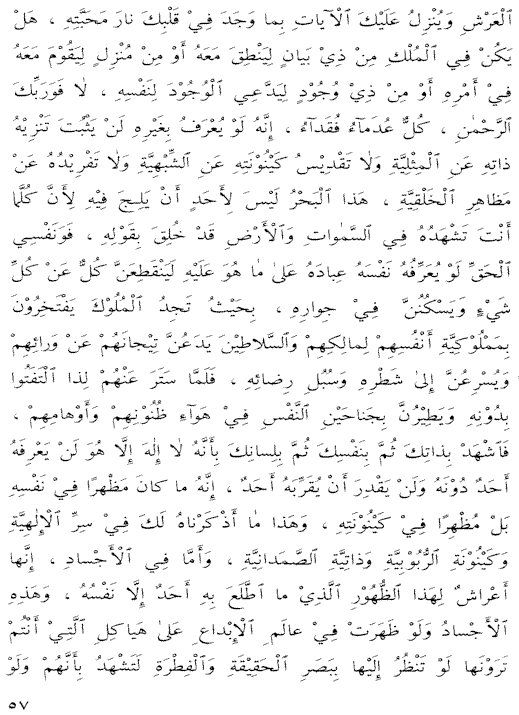 ٱلْعَرْشِ وَيُنْزِلُ عَلَيْكَ ٱلْآيَاتِ بِما وَجَدَ فِيْ قَلْبِكَ نارَ مَحَبَّتِهِ ، هَلْ
يَكُنْ فِي ٱلْمُلْكِ مِنْ ذِيْ بَيانٍ لِيَنْطِقَ مَعَهُ أَوْ مِنْ مُنْزِلٍ لِيَقُوْمَ مَعَهُ
فِيْ أَمْرِهِ أَوْ مِنْ ذِيْ وُجُوْدٍ لِيَدَّعِي ٱلْوُجُوْدَ لِنَفْسِهِ ، لا فَوَرَبِّكَ
ٱلرَّحْمٰنِ ، كُلٌّ عُدَمآءُ فُقَدآءُ ، إِنَّهُ لَوْ يُعْرَفُ بِغَيْرِهِ لَنْ يَثْبُتَ تَنْزِيْهُ
ذاتِهِ عَنِ ٱلْمِثْلِيَّةِ وَلا تَقْدِيْسُ كَيْنُوْنَتِهِ عَنِ ٱلشِّبْهِيَّةِ وَلا تَفْرِيْدُهُ عَنْ
مَظاهِرِ ٱلْخَلْقِيَّةِ ، هَذا ٱلْبَحْرُ لَيْسَ لِأَحَدٍ أَنْ يَلِجَ فِيْهِ لِأَنَّ كُلَّما
أَنْتَ تَشْهَدُهُ فِي ٱلسَّمٰواتِ وَٱلْأَرْضِ قَدْ خُلِقَ بِقَوْلِهِ ، فَوَنَفْسِي
ٱلْحَقِّ لَوْ يُعَرِّفُهُ نَفْسَهُ عِبادَهُ عَلىٰ ما هُوَ عَلَيْهِ لَيَنْقَطِعَنَّ كُلٌّ عَنْ كُلِّ
شَيْءٍ وَيَسْكُنُنَّ فِيْ جِوارِهِ ، بِحَيْثُ تَجِدُ ٱلْمُلُوْكَ يَفْتَخِرُوْنَ
بِمَمْلُوْكِيَّةِ أَنْفُسِهِمْ لِمالِكِهِمْ وَٱلسَّلاطِيْنَ يَدَعُنَّ تِيْجانَهُمْ عَنْ وَرائِهِمْ
وَيُسْرِعُنَّ إِلىٰ شَطْرِهِ وَسُبُلِ رِضائِهِ ، فَلَمَّا سَتَرَ عَنْهُمْ لِذا ٱلْتَفَتُوا
بِدُوْنِهِ وَيَطِيْرُنَّ بِجَناحَيْنِ ٱلنَّفْسِ فِيْ هَوآءِ ظُنُوْنِهِمْ وَأَوْهامِهِمْ ،
فَٱشْهَدْ بِذاتِكَ ثُمَّ بِنَفْسِكَ ثُمَّ بِلِسانِكَ بِأَنَّهُ لا إِلٰهَ إِلَّا هُوَ لَنْ يَعْرِفَهُ
أَحَدٌ دُوْنَهُ وَلَنْ يَقْدِرَ أَنْ يُقَرِّبَهُ أَحَدٌ ، إِنَّهُ ما كانَ مَظْهَرًا فِيْ نَفْسِهِ
بَلْ مُظْهِرًا فِيْ كَيْنُوْنَتِهِ ، وَهَذا ما أَذْكَرْناهُ لَكَ فِيْ سِرِّ ٱلْإِلٰهِيَّةِ
وَكَيْنُوْنَةِ ٱلرُّبُوْبِيَّةِ وَذاتِيَّةِ ٱلصَّمَدانِيَّةِ ، وَأَمَّا فِيْ ٱلْأَجْسادِ ، إِنَّها
أَعْراشٌ لِهَذا ٱلظُّهُوْرِ ٱلَّذِيْ ما ٱطَّلَعَ بِهِ أَحَدٌ إِلَّا نَفْسُهُ ، وَهَذِهِ
ٱلْأَجْسادُ وَلَوْ ظَهَرَتْ فِيْ عالَمِ ٱلْإِبْداعِ عَلىٰ هَياكِلِ ٱلَّتِيْ أَنْتُمْ
تَرَوْنَها لَوْ تَنْظُرُ إِلَيْها بِبَصَرِ ٱلْحَقِيْقَةِ وَٱلْفِطْرَةِ لَتَشْهَدُ بِأَنَّهُمْ وَلَوْ
٥٧